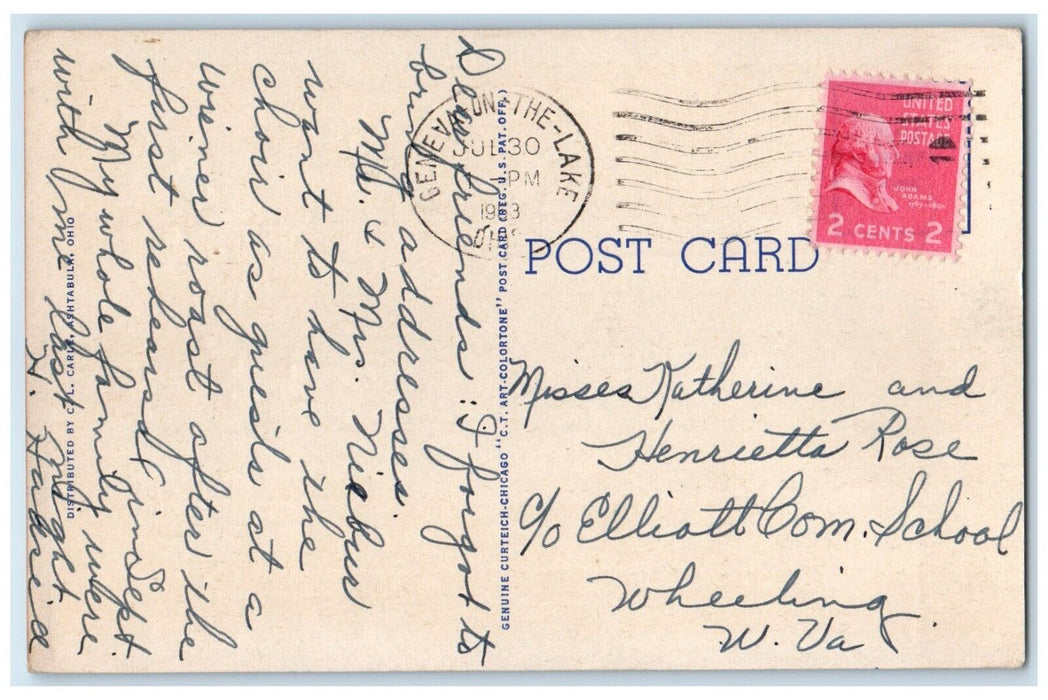 Dear friends: I forgot to
bring addresses.
Mr. & Mrs. Niebur
want to have the
choir as guests at a
wiener roast after the
first rehearsal in Sept
My whole family were
with me last night.
GENEVA-ON-THE-LAKE
JUL 30
PM
1953
OHIO
UNITED
STATES
POSTAGE
JOHN
ADAMS
1797-1801
2 CENTS 2
POST CARD
Misses Katherine and
Henrietta Rose
c/o Elliott Com. School
Wheeling
W. Va
GENUINE CURTEICH-CHICAGO "C.T. ART-COLORTONE" POST CARD (REG. U.S. PAT. OFF.)
DISTRIBUTED BY C. L. CARLE, ASHTABULA, OHIO